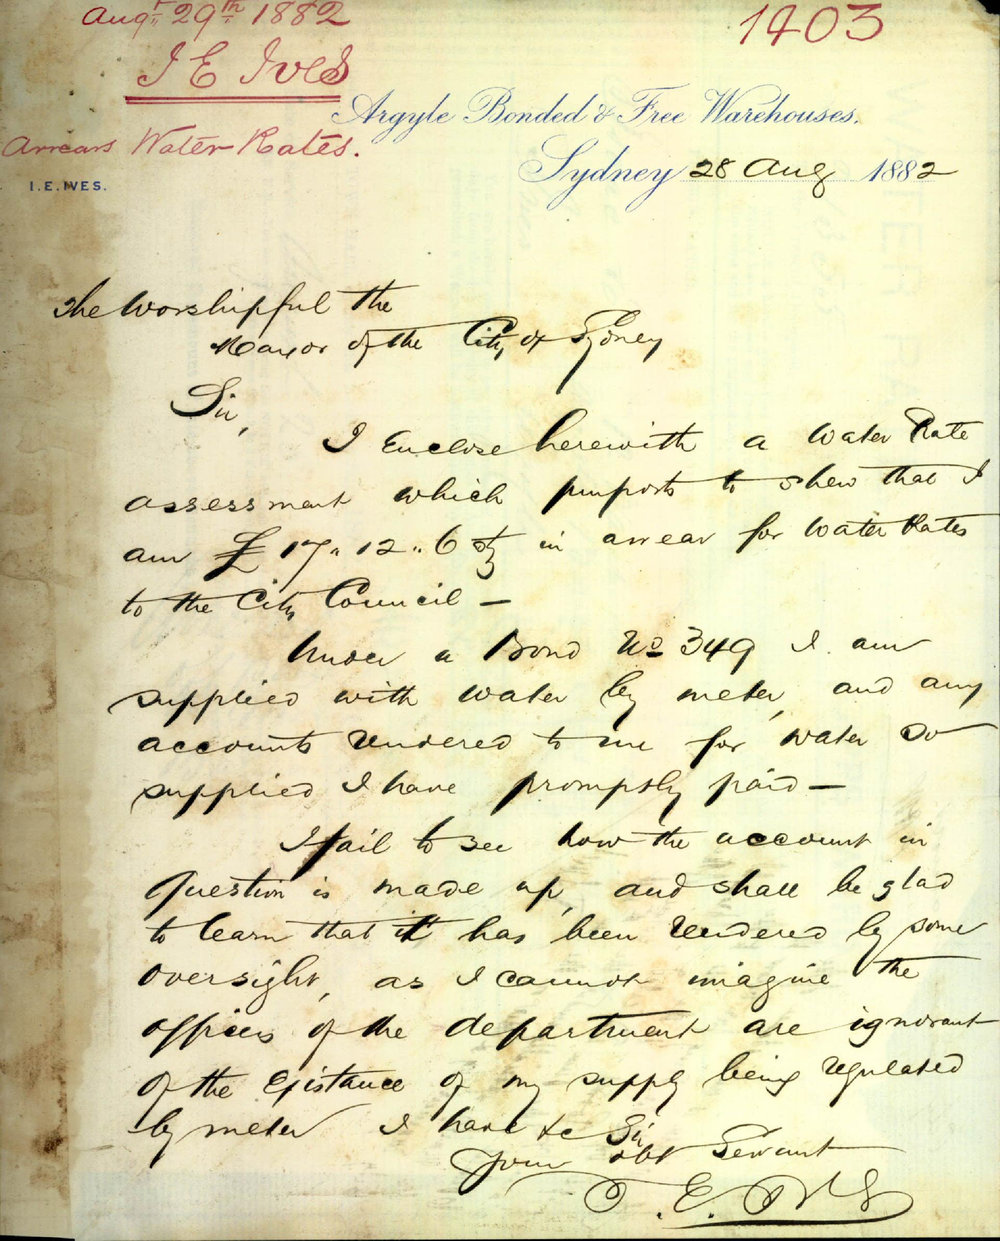 Augt. 29th 1882
1403
I E Ives
Arrears Water Rates.
Argyle Bonded & Free Warehouses.
Sydney 28 Aug 1882
I.E.IVES.
The Worshipful the
Mayor of the City of Sydney
Sir,
I Enclose herewith a Water Rate
assessment which purports to shew that I
am £17"12"6 stg in arrear for Water Rates
to the City Council —
Under a Bond No 349 I am
supplied with water by meter, and any
accounts rendered to me for water so
supplied I have promptly paid —
I fail to see how the account in
question is made up, and shall be glad
to learn that it has been rendered by some
oversight, as I cannot imagine the
officers of the department are ignorant
of the Existance of my supply being regulated
by meter I have &c Sir
Your obt Servant
I. E. Ives